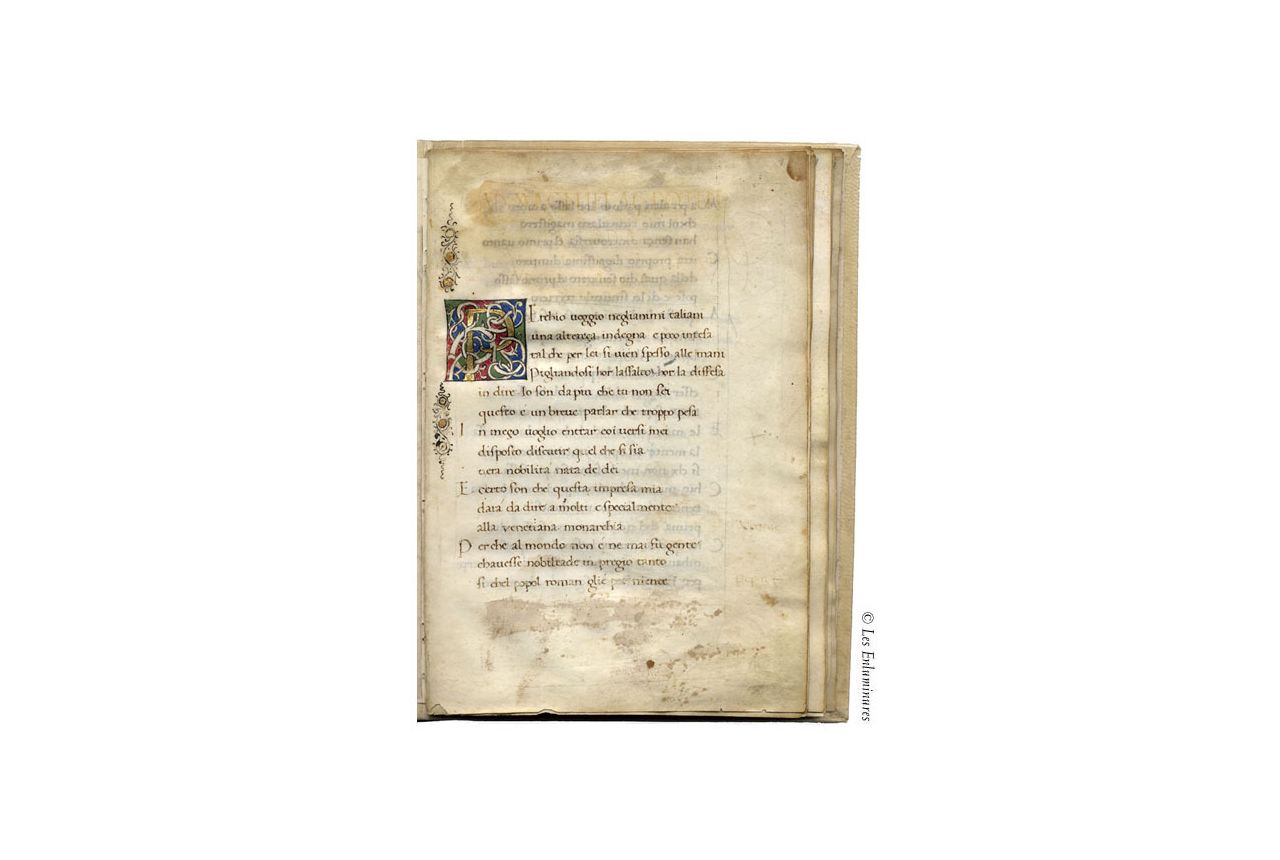 Erchio ueggio neglianimi taliani
una alterega indegna e poco intesa
tal che per lei si vien spesso alle mani
Pigliandosi hor lassalto, hor la diffesa
in dire Io son da piu che tu non sei
questo é un breve parlar che troppo pesa
I n mego uoglio entrar coi versi mei
disposto discutir quel che si sia
uera nobilitá nata de dei
E certo son che questa impresa mia
dará da dire a molti e specialmente
alla venetiana monarchia
P erche al mondo non é ne mai fu gente
chauesse nobiltade in pregio tanto
si chel popol roman glié per niente
© Les Enluminures